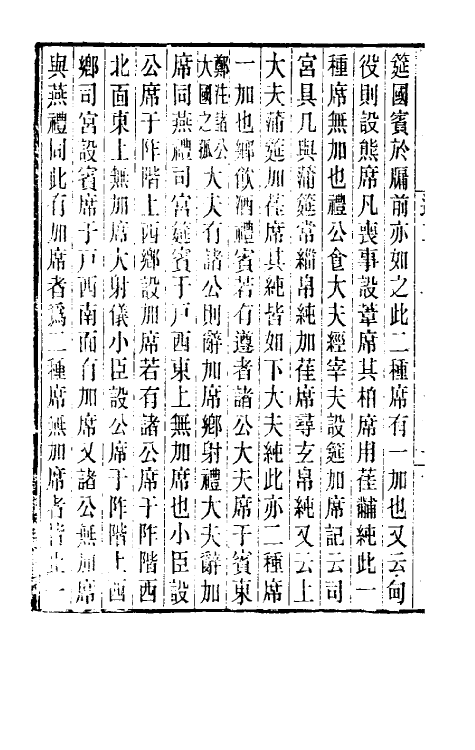 筵國賓於牖前亦如之此二種席有一加也又云甸
役則設熊席凡喪事設葦席其柏席用萑黼純此一
種席無加也禮公食大夫經宰夫設筵加席記云司
宮具几與蒲筵常緇帛純加萑席尋玄帛純又云上
大夫蒲筵加萑席其純皆如下大夫純此亦二種席
一加也鄉飲酒禮賓若有遵者諸公大夫席于賓東
鄭注諸公大國之孤大夫有諸公則辭加席鄉射禮大夫辭加
席同燕禮司宮筵賓于戶西東上無加席也小臣設
公席于阼階上西鄉設加席若有諸公席于阼階西
北面東上無加席大射儀小臣設公席于阼階上西
鄉司宮設賓席于戶西南面有加席又諸公無加席
與燕禮同此有加席者為二種席無加席者皆止一